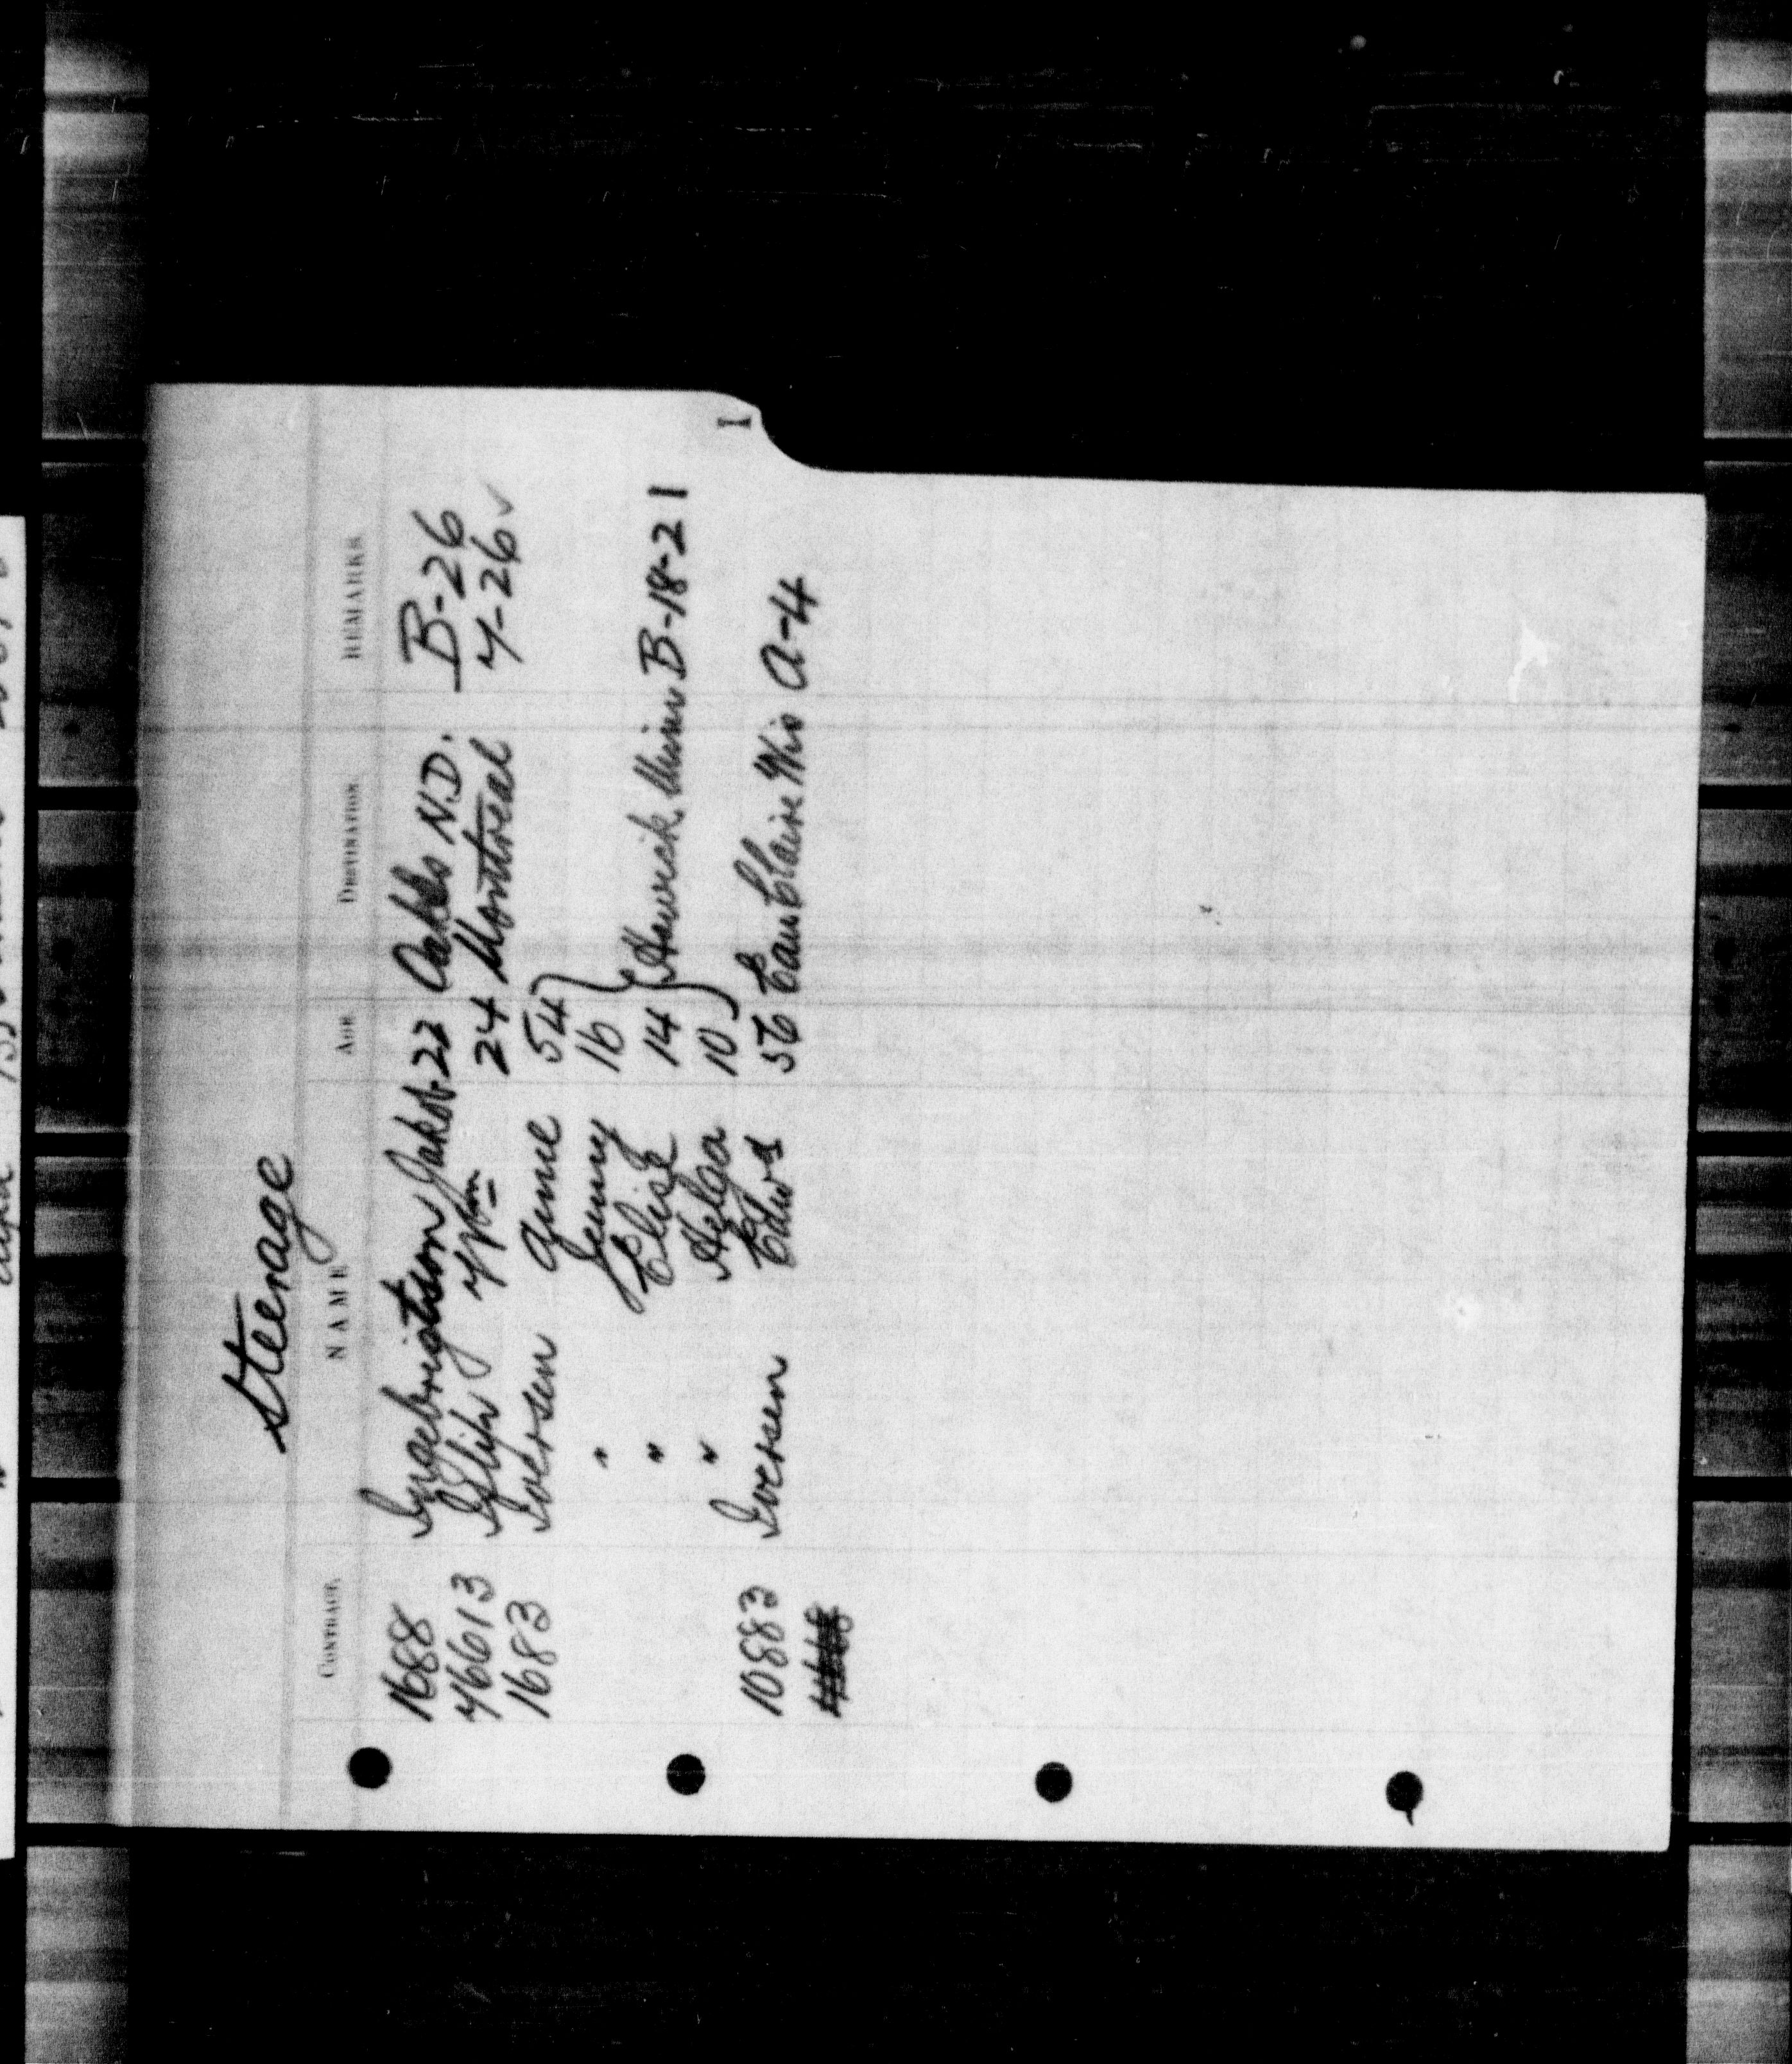 Steerage
CONTRACT. NAME AGE DESTINATION REMARKS.
1688 Ingebrigtson Jakob 22 Oakes N.D. B-26
46613 Wm 24 Montreal Y-26 ✓
1683 Iversen Anne 54
" Jenny 16
" Elise 14 Hawick Minn B-18-21
" Helga 10
10883 Iversen Edwd 56 Eau Claire Wis A-4
I